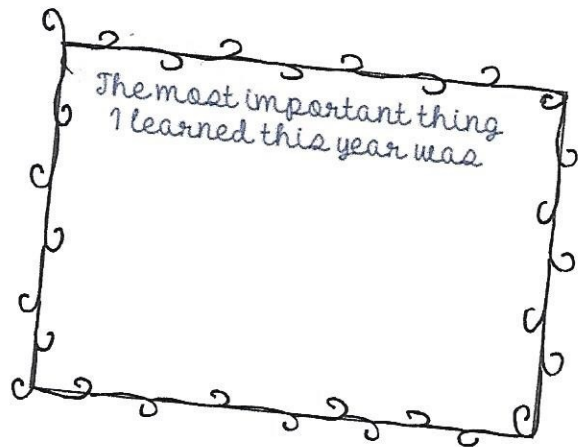 The most important thing
I learned this year was